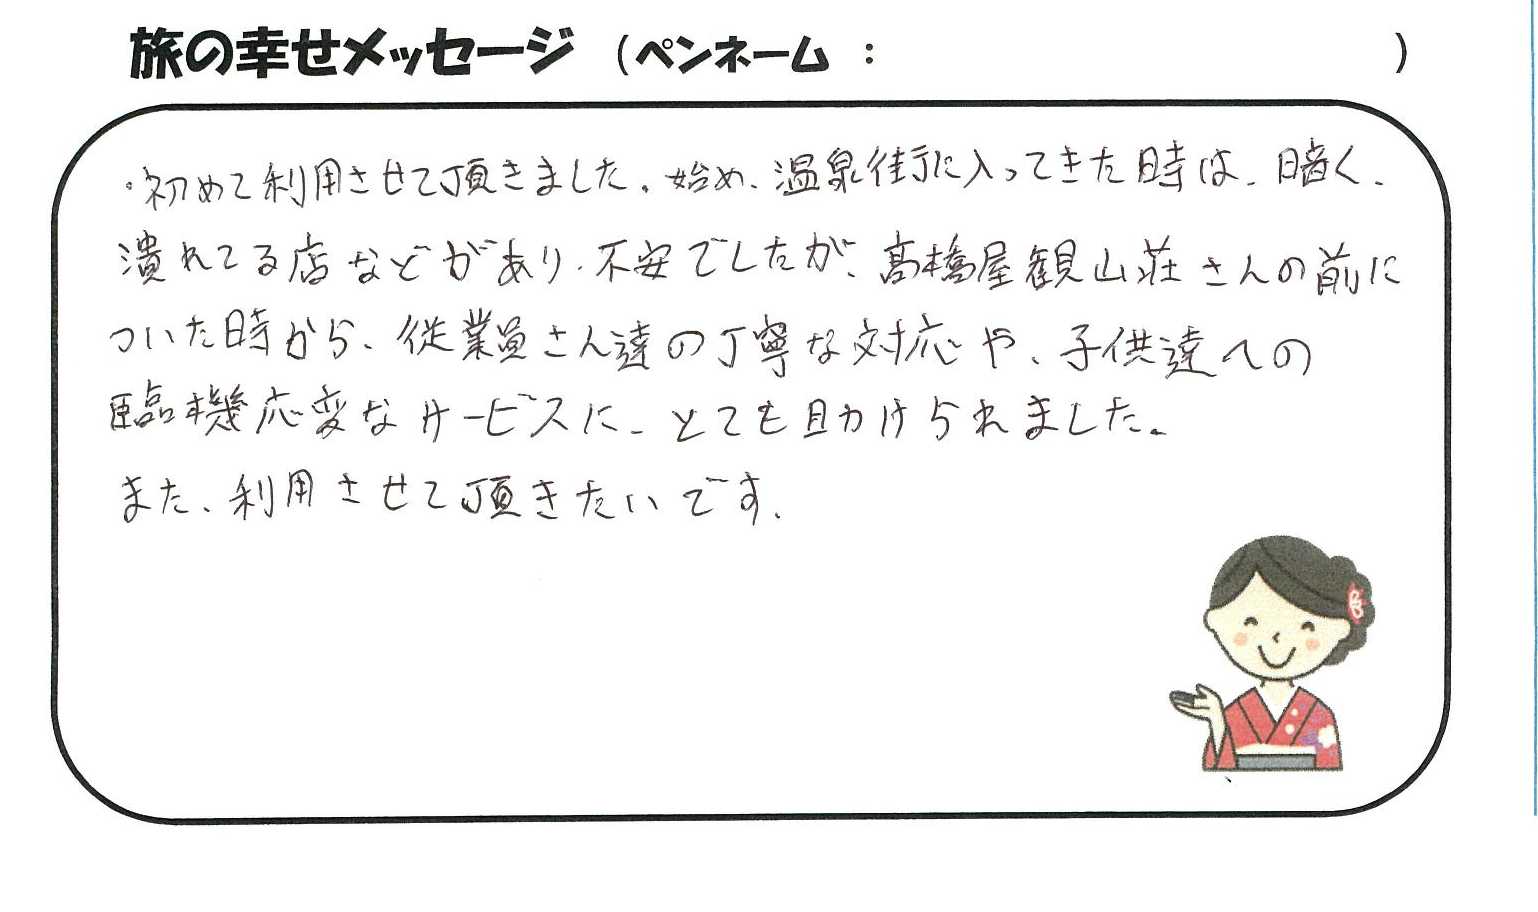 旅の幸せメッセージ （ペンネーム ： ）
・初めて利用させて頂きました。始め、温泉街に入ってきた時は、暗く、
潰れてる店などがあり、不安でしたが、髙橋屋観山荘さんの前に
ついた時から、従業員さん達の丁寧な対応や、子供達への
臨機応変なサービスに、とても助けられました。
また、利用させて頂きたいです。